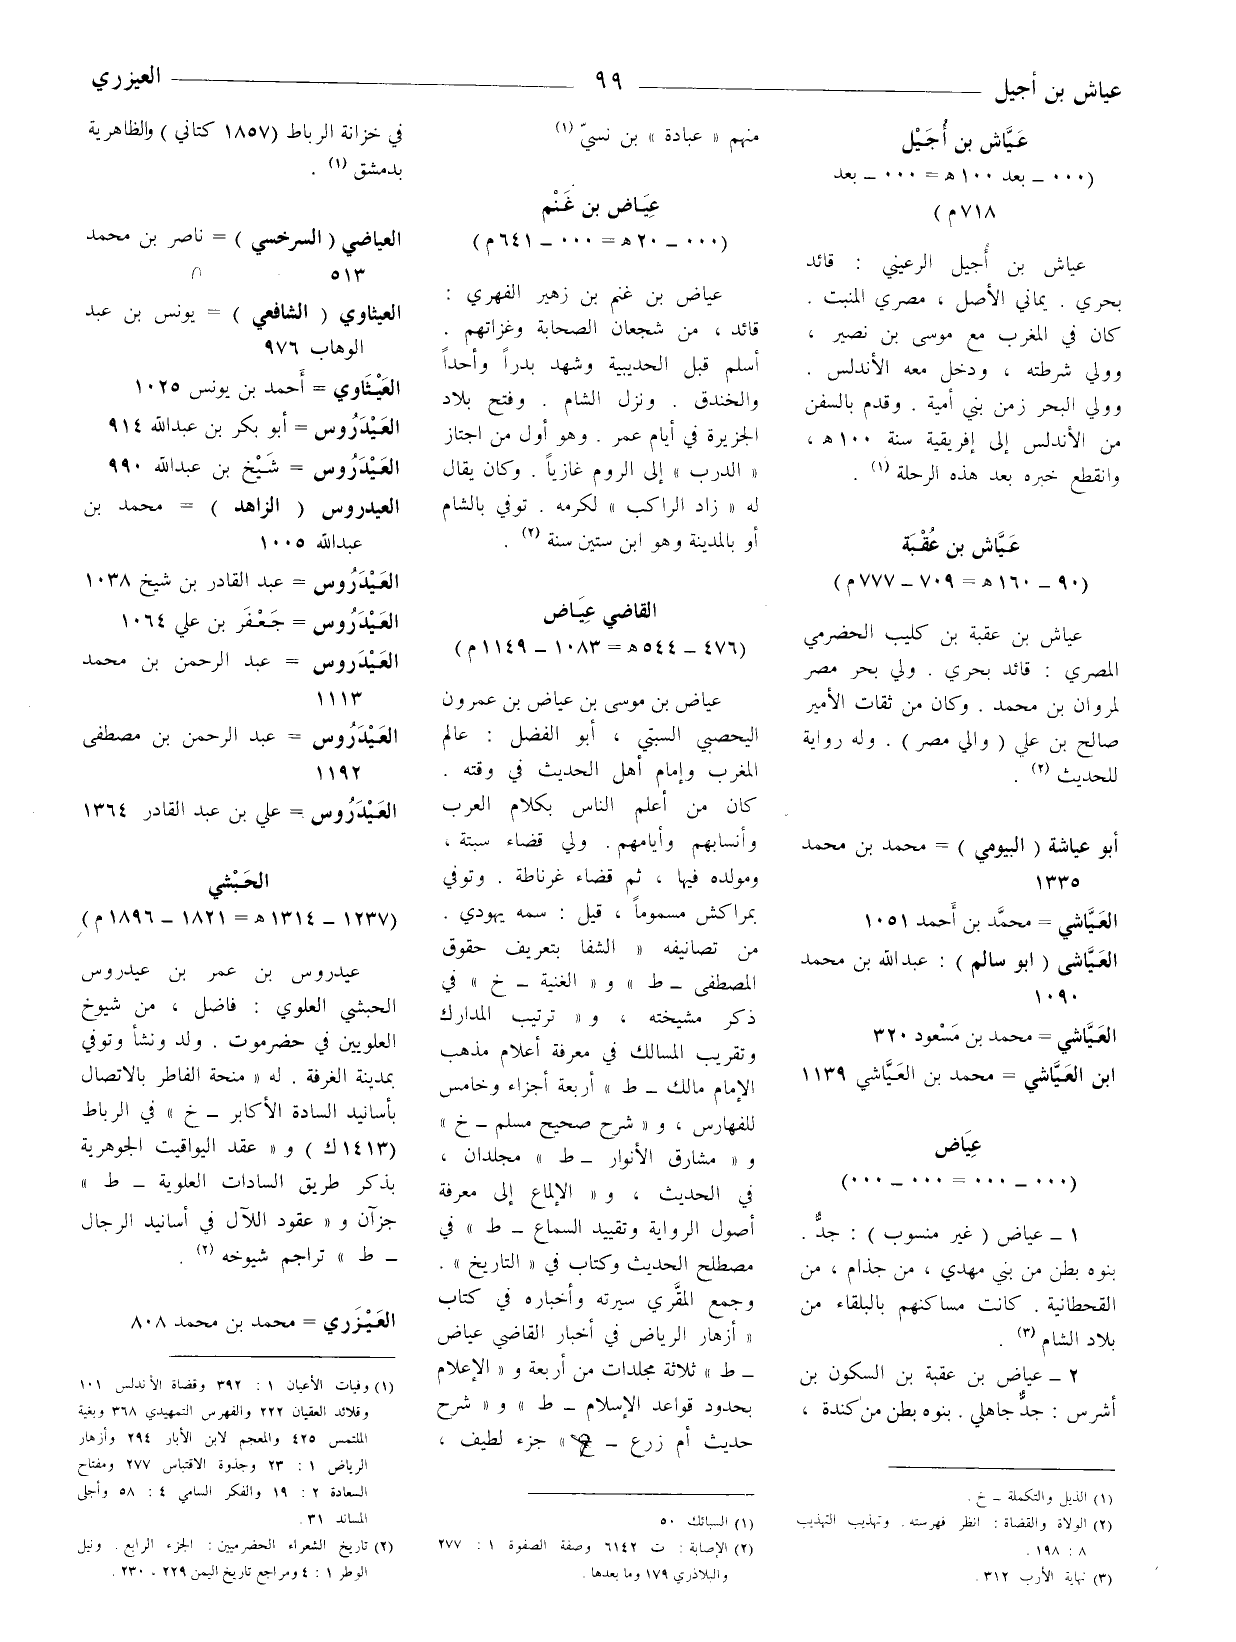 عياش بن أجيل
٩٩
العيزري
عَيَّاش بن أُجَيْل
(٠٠٠ ــ بعد ١٠٠ هـ = ٠٠٠ ــ بعد
٧١٨ م)
عياش بن أُجيل الرعيني : قائد
بحري . يماني الأصل ، مصري المنبت .
كان في المغرب مع موسى بن نصير ،
وولي شرطته ، ودخل معه الأندلس .
وولي البحر زمن بني أمية . وقدم بالسفن
من الأندلس إلى إفريقية سنة ١٠٠ هـ ،
وانقطع خبره بعد هذه الرحلة (١) .
عَيَّاش بن عُقْبَة
(٩٠ ــ ١٦٠ هـ = ٧٠٩ ــ ٧٧٧ م)
عياش بن عقبة بن كليب الحضرمي
المصري : قائد بحري . ولي بحر مصر
لمروان بن محمد . وكان من ثقات الأمير
صالح بن علي ( والي مصر ) . وله رواية
للحديث (٢) .
أبو عياشة ( البيومي ) = محمد بن محمد
١٣٣٥
العَيَّاشي = محمَّد بن أَحمد ١٠٥١
العَيَّاشي ( ابو سالم ) : عبدالله بن محمد
١٠٩٠
العَيَّاشي = محمد بن مَسْعود ٣٢٠
ابن العَيَّاشي = محمد بن العَيَّاشي ١١٣٩
عِيَاض
(٠٠٠ ــ ٠٠٠ = ٠٠٠ ــ ٠٠٠)
١ ــ عياض ( غير منسوب ) : جدٌّ .
بنوه بطن من بني مهدي ، من جذام ، من
القحطانية . كانت مساكنهم بالبلقاء من
بلاد الشام (٣) .
٢ ــ عياض بن عقبة بن السكون بن
أشرس : جدٌّ جاهلي . بنوه بطن من كندة ،
(١) الذيل والتكملة ــ خ .
(٢) الولاة والقضاة : انظر فهرسته . وتهذيب التهذيب
٨ : ١٩٨ .
(٣) نهاية الأرب ٣١٢ .
منهم « عبادة » بن نسيّ (١)
عِيَاض بن غَنْم
(٠٠٠ ــ ٢٠ هـ = ٠٠٠ ــ ٦٤١ م)
عياض بن غنم بن زهير الفهري :
قائد ، من شجعان الصحابة وغزاتهم .
أسلم قبل الحديبية وشهد بدراً وأحداً
والخندق . ونزل الشام . وفتح بلاد
الجزيرة في أيام عمر . وهو أول من اجتاز
« الدرب » إلى الروم غازياً . وكان يقال
له « زاد الراكب » لكرمه . توفي بالشام
أو بالمدينة وهو ابن ستين سنة (٢) .
القاضي عِيَاض
(٤٧٦ ــ ٥٤٤ هـ = ١٠٨٣ ــ ١١٤٩ م)
عياض بن موسى بن عياض بن عمرون
اليحصبي السبتي ، أبو الفضل : عالم
المغرب وإمام أهل الحديث في وقته .
كان من أعلم الناس بكلام العرب
وأنسابهم وأيامهم . ولي قضاء سبتة ،
ومولده فيها ، ثم قضاء غرناطة . وتوفي
بمراكش مسموماً ، قيل : سمه يهودي .
من تصانيفه « الشفا بتعريف حقوق
المصطفى ــ ط » و « الغنية ــ خ » في
ذكر مشيخته ، و « ترتيب المدارك
وتقريب المسالك في معرفة أعلام مذهب
الإمام مالك ــ ط » أربعة أجزاء وخامس
للفهارس ، و « شرح صحيح مسلم ــ خ »
و « مشارق الأنوار ــ ط » مجلدان ،
في الحديث ، و « الإلماع إلى معرفة
أصول الرواية وتقييد السماع ــ ط » في
مصطلح الحديث وكتاب في « التاريخ » .
وجمع المقَّري سيرته وأخباره في كتاب
« أزهار الرياض في أخبار القاضي عياض
ــ ط » ثلاثة مجلدات من أربعة و « الإعلام
بحدود قواعد الإسلام ــ ط » و « شرح
حديث أم زرع ــ » جزء لطيف ،
(١) السبائك ٥٠
(٢) الإصابة : ت ٦١٤٢ وصفة الصفوة ١ : ٢٧٧
والبلاذري ١٧٩ وما بعدها .
في خزانة الرباط (١٨٥٧ كتاني ) والظاهرية
بدمشق (١) .
العياضي ( السرخسي ) = ناصر بن محمد
٥١٣
العيثاوي ( الشافعي ) = يونس بن عبد
الوهاب ٩٧٦
العَيْثَاوي = أَحمد بن يونس ١٠٢٥
العَيْدَرُوس = أبو بكر بن عبدالله ٩١٤
العَيْدَرُوس = شَيْخ بن عبدالله ٩٩٠
العيدروس ( الزاهد ) = محمد بن
عبدالله ١٠٠٥
العَيْدَرُوس = عبد القادر بن شيخ ١٠٣٨
العَيْدَرُوس = جَعْفَر بن علي ١٠٦٤
العَيْدَرُوس = عبد الرحمن بن محمد
١١١٣
العَيْدَرُوس = عبد الرحمن بن مصطفى
١١٩٢
العَيْدَرُوس = علي بن عبد القادر ١٣٦٤
الحَبْشي
(١٢٣٧ ــ ١٣١٤ هـ = ١٨٢١ ــ ١٨٩٦ م)
عيدروس بن عمر بن عيدروس
الحبشي العلوي : فاضل ، من شيوخ
العلويين في حضرموت . ولد ونشأ وتوفي
بمدينة الغرفة . له « منحة الفاطر بالاتصال
بأسانيد السادة الأكابر ــ خ » في الرباط
(١٤١٣ ك ) و « عقد اليواقيت الجوهرية
بذكر طريق السادات العلوية ــ ط »
جزآن و « عقود اللآل في أسانيد الرجال
ــ ط » تراجم شيوخه (٢) .
العَيْزَري = محمد بن محمد ٨٠٨
(١) وفيات الأعيان ١ : ٣٩٢ وقضاة الأندلس ١٠١
وقلائد العقيان ٢٢٢ والفهرس التمهيدي ٣٦٨ وبغية
الملتمس ٤٢٥ والمعجم لابن الأبار ٢٩٤ وأزهار
الرياض ١ : ٢٣ وجذوة الاقتباس ٢٧٧ ومفتاح
السعادة ٢ : ١٩ والفكر السامي ٤ : ٥٨ وأجلى
المساند ٣١ .
(٢) تاريخ الشعراء الحضرميين : الجزء الرابع . ونيل
الوطر ١ : ٤ ومراجع تاريخ اليمن ٢٢٩ ، ٢٣٠ .